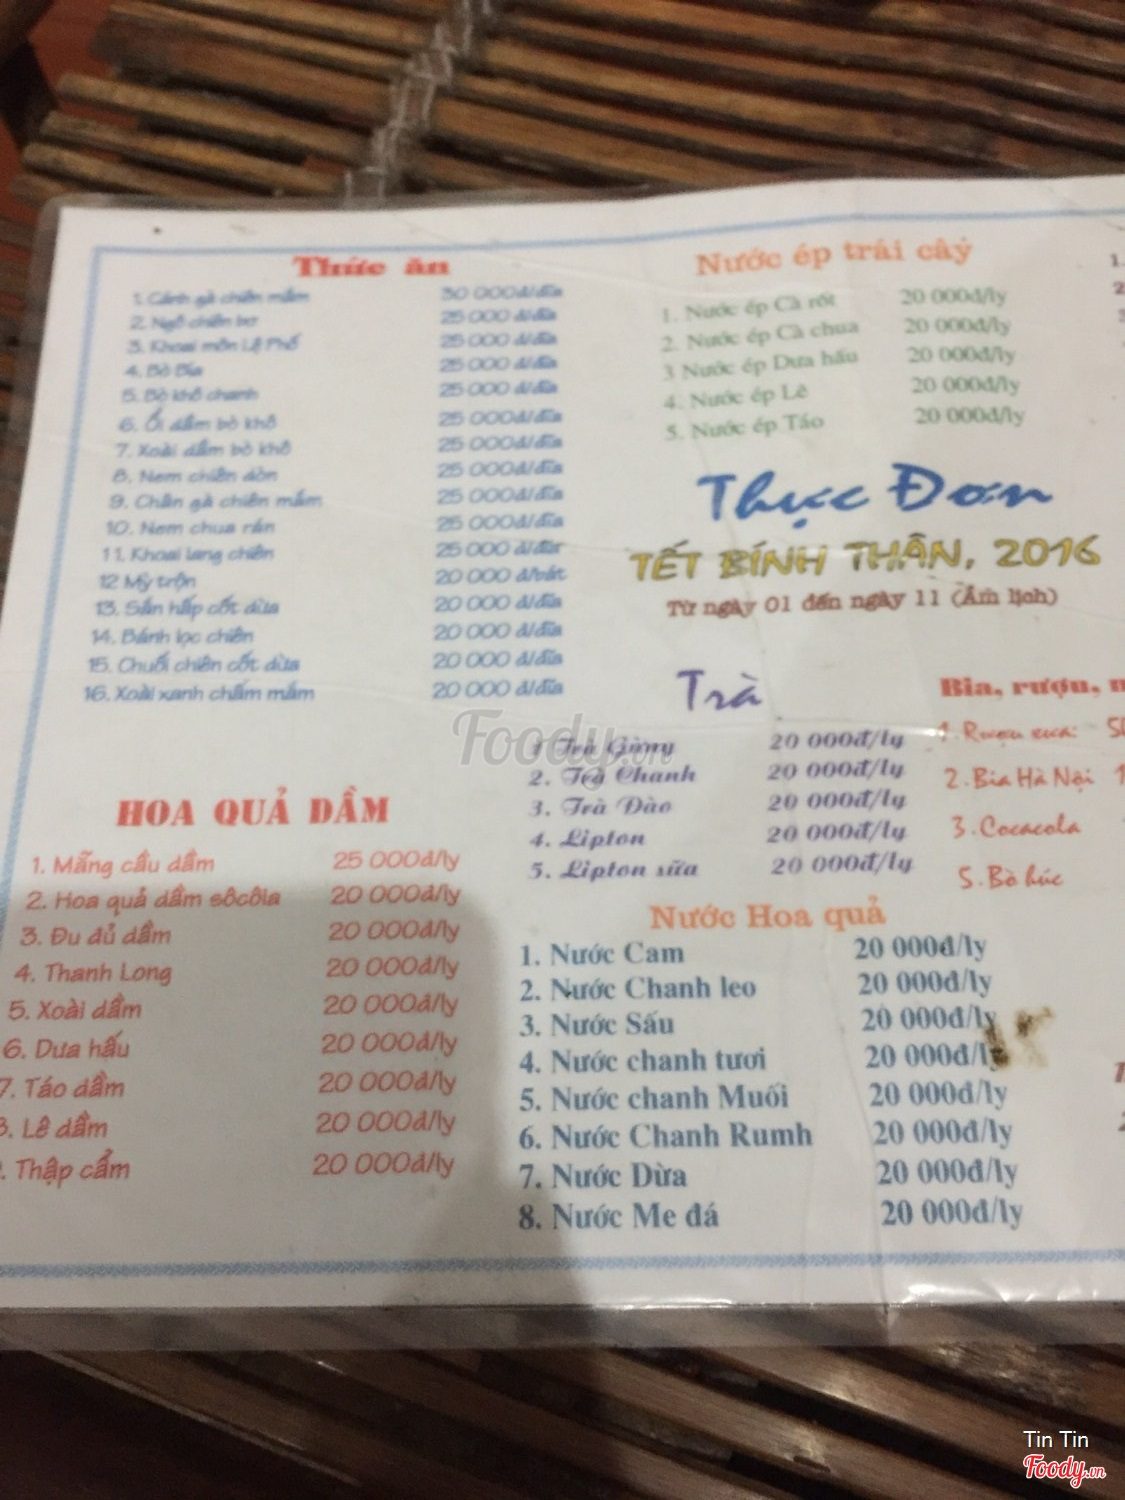 Thức ăn
1. Cánh gà chiên mắm 30 000đ/đĩa
2. Ngô chiên bơ 25 000 đ/đĩa
3. Khoai môn Lệ Phố 25 000 đ/đĩa
4. Bò Bía 25 000 đ/đĩa
5. Bò khô chanh 25 000 đ/đĩa
6. Ổi dầm bò khô 25 000 đ/đĩa
7. Xoài dầm bò khô 25 000đ/đĩa
8. Nem chiên dòn 25 000đ/đĩa
9. Chân gà chiên mắm 25 000đ/đĩa
10. Nem chua rán 25 000đ/đĩa
11. Khoai lang chiên 25 000
12 Mỳ trộn 20 000 đ/bát
13. Sắn hấp cốt dừa 20 000 đ/đĩa
14. Bánh lọc chiên 20 000 đ/đĩa
15. Chuối chiên cốt dừa 20 000 đ/đĩa
16. Xoài xanh chấm mắm 20 000 đ/đĩa
HOA QUẢ DẦM
1. Mãng cầu dầm 25 000đ/ly
2. Hoa quả dầm sôcôla 20 000đ/ly
3. Đu đủ dầm 20 000đ/ly
4. Thanh Long 20 000đ/ly
5. Xoài dầm 20 000đ/ly
6. Dưa hấu 20 000đ/ly
7. Táo dầm 20 000đ/ly
8. Lê dầm 20 000đ/ly
. Thập cẩm 20 000đ/ly
Nước ép trái cây
1. Nước ép Cà rốt 20 000đ/ly
2. Nước ép Cà chua 20 000đ/ly
3 Nước ép Dưa hấu 20 000đ/ly
4. Nước ép Lê 20 000đ/ly
5. Nước ép Táo 20 000đ/ly
Thực Đơn
TẾT BÍNH THÂN, 2016
Từ ngày 01 đến ngày 11 (Âm lịch)
Trà
1 Trà Gừng 20 000đ/ly
2. Trà Chanh 20 000đ/ly
3. Trà Đào 20 000đ/ly
4. Lipton 20 000đ/ly
5. Lipton sữa 20 000đ/ly
Bia, rượu,
1. Rượu
2. Bia Hà Nội
3. Cocacola
5. Bò húc
Nước Hoa quả
1. Nước Cam 20 000đ/ly
2. Nước Chanh leo 20 000đ/ly
3. Nước Sấu 20 000đ/ly
4. Nước chanh tươi 20 000đ/ly
5. Nước chanh Muối 20 000đ/ly
6. Nước Chanh Rumh 20 000đ/ly
7. Nước Dừa 20 000đ/ly
8. Nước Me đá 20 000đ/ly
Foody.vn
Tin Tin
Foody.vn